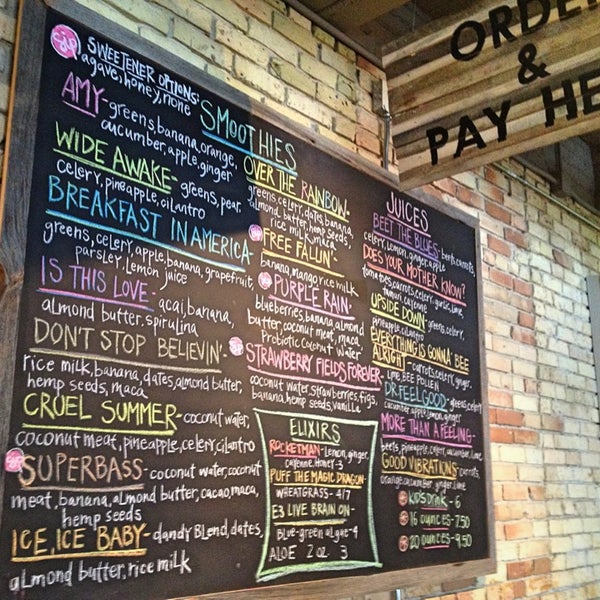 SWEETENER OPTIONS:
agave, honey, none
SMOOTHIES
AMY - greens, banana, orange,
cucumber, apple, ginger
WIDE AWAKE - greens, pear,
celery, pineapple, cilantro
BREAKFAST IN AMERICA -
greens, celery, apple, banana, grapefruit,
parsley, lemon juice
IS THIS LOVE - acai, banana,
almond butter, spirulina
DON'T STOP BELIEVIN' -
rice milk, banana, dates, almond butter,
hemp seeds, maca
CRUEL SUMMER - coconut water,
coconut meat, pineapple, celery, cilantro
SUPERBASS - coconut water, coconut
meat, banana, almond butter, cacao, maca,
hemp seeds
ICE, ICE BABY - dandy blend, dates,
almond butter, rice milk
OVER THE RAINBOW -
greens, celery, dates, banana,
almond butter, hemp seeds,
rice milk, maca
FREE FALLIN' -
banana, mango, rice milk
PURPLE RAIN -
blueberries, banana, almond
butter, coconut meat, maca,
Probiotic coconut water
STRAWBERRY FIELDS FOREVER -
coconut water, strawberries, figs,
banana, hemp seeds, vanilla
ELIXIRS
ROCKETMAN - Lemon, ginger,
cayenne, honey - 3
PUFF THE MAGIC DRAGON -
WHEATGRASS - 4/7
E3 LIVE BRAIN ON -
Blue-green algae - 4
ALOE 2 oz 3
JUICES
BEET THE BLUES - beets, carrots,
celery, lemon, ginger, apple
DOES YOUR MOTHER KNOW? -
tomatoes, carrots, celery, garlic, lime,
tamari, cayenne
UPSIDE DOWN - greens, celery,
pineapple, cilantro
EVERYTHING IS GONNA BEE
ALRIGHT - carrots, celery, ginger,
lime, BEE POLLEN
DR. FEELGOOD - greens, celery,
cucumber, apple, lemon, ginger
MORE THAN A FEELING -
beets, pineapple, celery, cucumber, lime
GOOD VIBRATIONS - carrots,
orange, cucumber, ginger, lime
KIDS DRINK - 6
16 OUNCES - 7.50
20 OUNCES - 9.50
ORDER
&
PAY HE